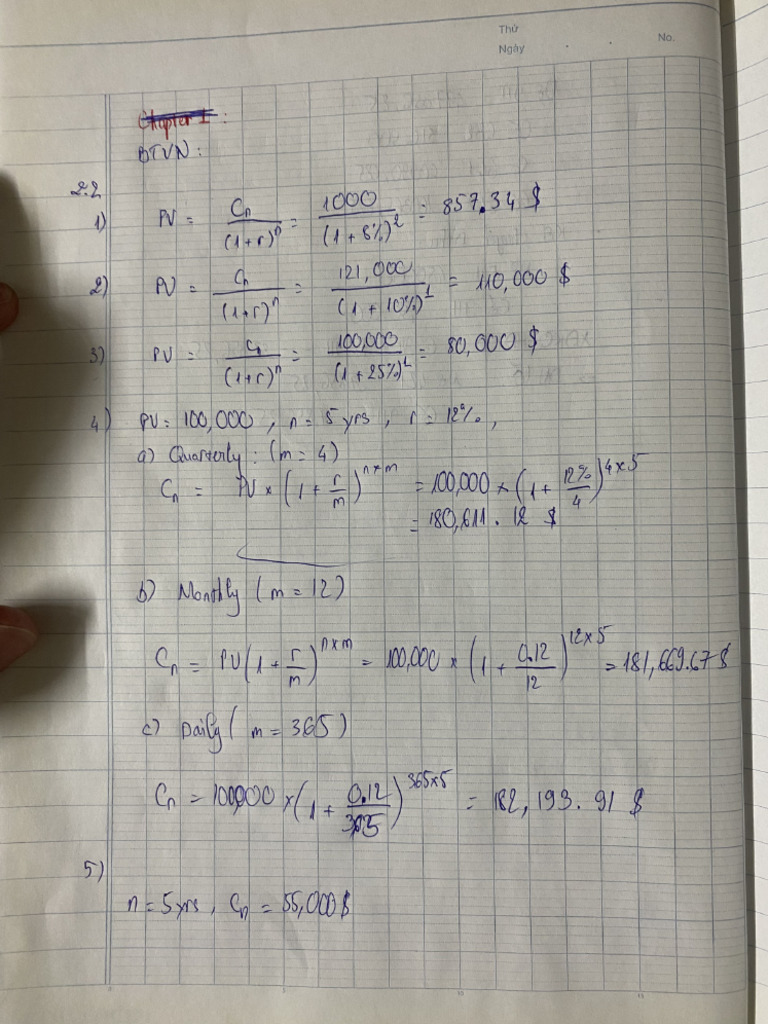 Thứ
Ngày . . No.
Chapter I :
BTVN :
2.2
1) PV = Cn / (1+r)^n = 1000 / (1+8%)^2 = 857.34 $
2) PV = Cn / (1+r)^n = 121,000 / (1+10%)^1 = 110,000 $
3) PV = C1 / (1+r)^n = 100,000 / (1+25%)^1 = 80,000 $
4) PV = 100,000 , n = 5 yrs , r = 12% ,
a) Quarterly : (m = 4)
Cn = PV × (1 + r/m)^n×m = 100,000 × (1 + 12%/4)^4×5
= 180,611.12 $
b) Monthly (m = 12)
Cn = PV(1 + r/m)^n×m = 100,000 × (1 + 0.12/12)^12×5 = 181,669.67 $
c) Daily ( m = 365)
Cn = 100,000 × (1 + 0.12/365)^365×5 = 182,193.91 $
5)
n = 5 yrs , Cn = 55,000 $